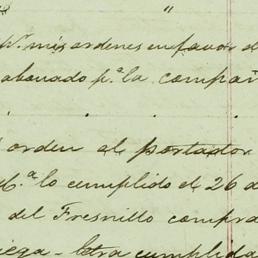 "
mis ordenes en favor d
abonado p.ª la compañ
orden al portador
C.ª lo cumplido el 26 d
del Fresnillo compra
letra cumplida